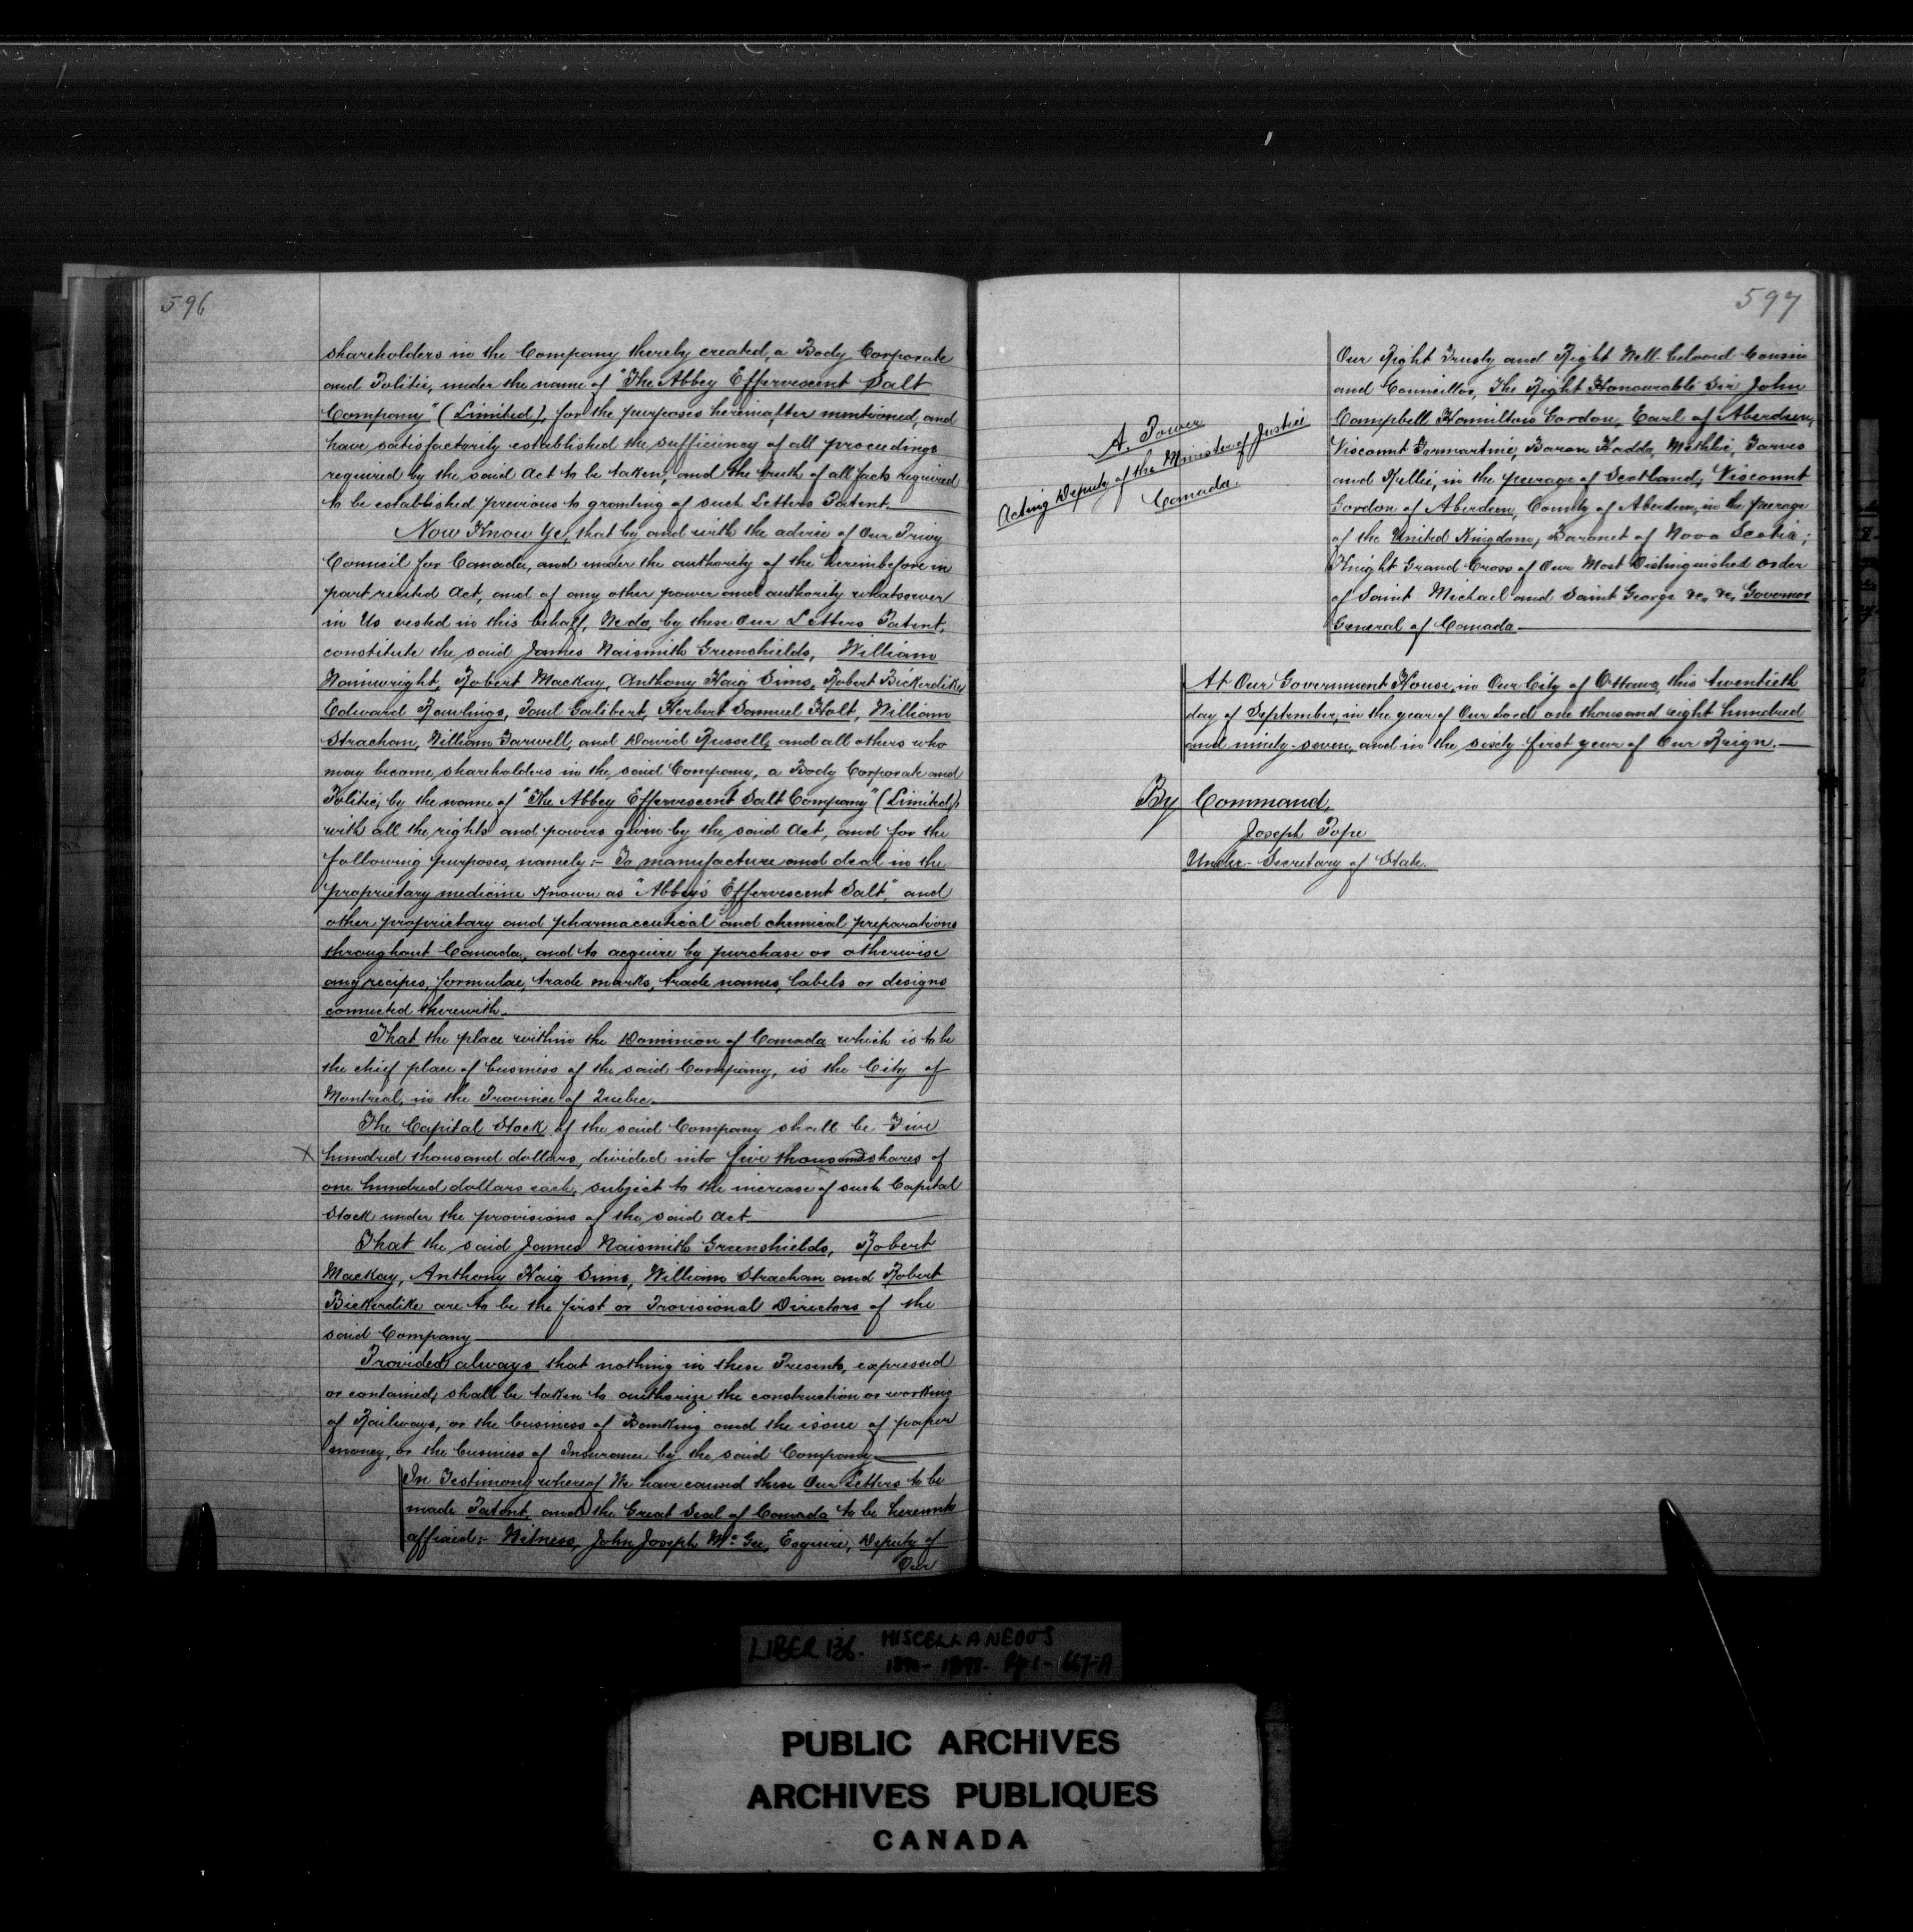 596
shareholders in the Company thereby created, a Body Corporate
and Politic, under the name of "The Abbey Effervescent Salt
Company" (Limited), for the purposes hereinafter mentioned, and
have satisfactorily established the sufficiency of all proceedings
required by the said Act to be taken, and the truth of all facts required
to be established previous to granting of such Letters Patent.
Now Know Ye, that by and with the advice of Our Privy
Council for Canada, and under the authority of the hereinbefore in
part recited Act, and of any other power and authority whatsoever
in Us vested in this behalf, We do, by these Our Letters Patent,
constitute the said James Naismith Greenshields, William
Wainwright, Robert Mackay, Anthony Haig Sims, Robert Bickerdike,
Edward Rawlings, Paul Galibert, Herbert Samuel Holt, William
Strachan, William Farwell, and David Russell, and all others who
may become shareholders in the said Company, a Body Corporate and
Politic, by the name of "The Abbey Effervescent Salt Company" (Limited),
with all the rights and powers given by the said Act, and for the
following purposes, namely:- To manufacture and deal in the
proprietary medicine known as "Abbey's Effervescent Salt", and
other proprietary and pharmaceutical and chemical preparations
throughout Canada, and to acquire by purchase or otherwise
any recipes, formulae, trade marks, trade names, labels or designs
connected therewith.
That the place within the Dominion of Canada which is to be
the chief place of business of the said Company, is the City of
Montreal, in the Province of Quebec.
The Capital Stock of the said Company shall be Five
X hundred thousand dollars, divided into five thousand shares of
one hundred dollars each, subject to the increase of such Capital
Stock under the provisions of the said Act.
That the said James Naismith Greenshields, Robert
Mackay, Anthony Haig Sims, William Strachan and Robert
Bickerdike are to be the first or Provisional Directors of the
said Company
Provided always that nothing in these Presents, expressed
or contained, shall be taken to authorize the construction or working
of Railways, or the business of Banking and the issue of paper
money, or the business of Insurance by the said Company
In Testimony whereof We have caused these Our Letters to be
made Patent, and the Great Seal of Canada to be hereunto
affixed:- Witness, John Joseph McGee, Esquire, Deputy of
Our
597
Our Right Trusty and Right Well-beloved Cousin
and Councillor, The Right Honourable Sir John
Campbell Hamilton Gordon, Earl of Aberdeen,
Viscount Formartine, Baron Haddo, Methlic, Tarves
and Kellie, in the peerage of Scotland; Viscount
Gordon of Aberdeen, County of Aberdeen, in the peerage
of the United Kingdom, Baronet of Nova Scotia;
Knight Grand Cross of Our Most Distinguished Order
of Saint Michael and Saint George &c, &c, Governor
General of Canada
A. Power
Acting Deputy of the Minister of Justice
Canada.
At Our Government House, in Our City of Ottawa, this twentieth
day of September, in the year of Our Lord one thousand eight hundred
and ninety-seven, and in the sixty-first year of Our Reign.
By Command,
Joseph Pope
Under-Secretary of State.
LIBER 136. MISCELLANEOUS
Pp 1- 667-A
PUBLIC ARCHIVES
ARCHIVES PUBLIQUES
CANADA